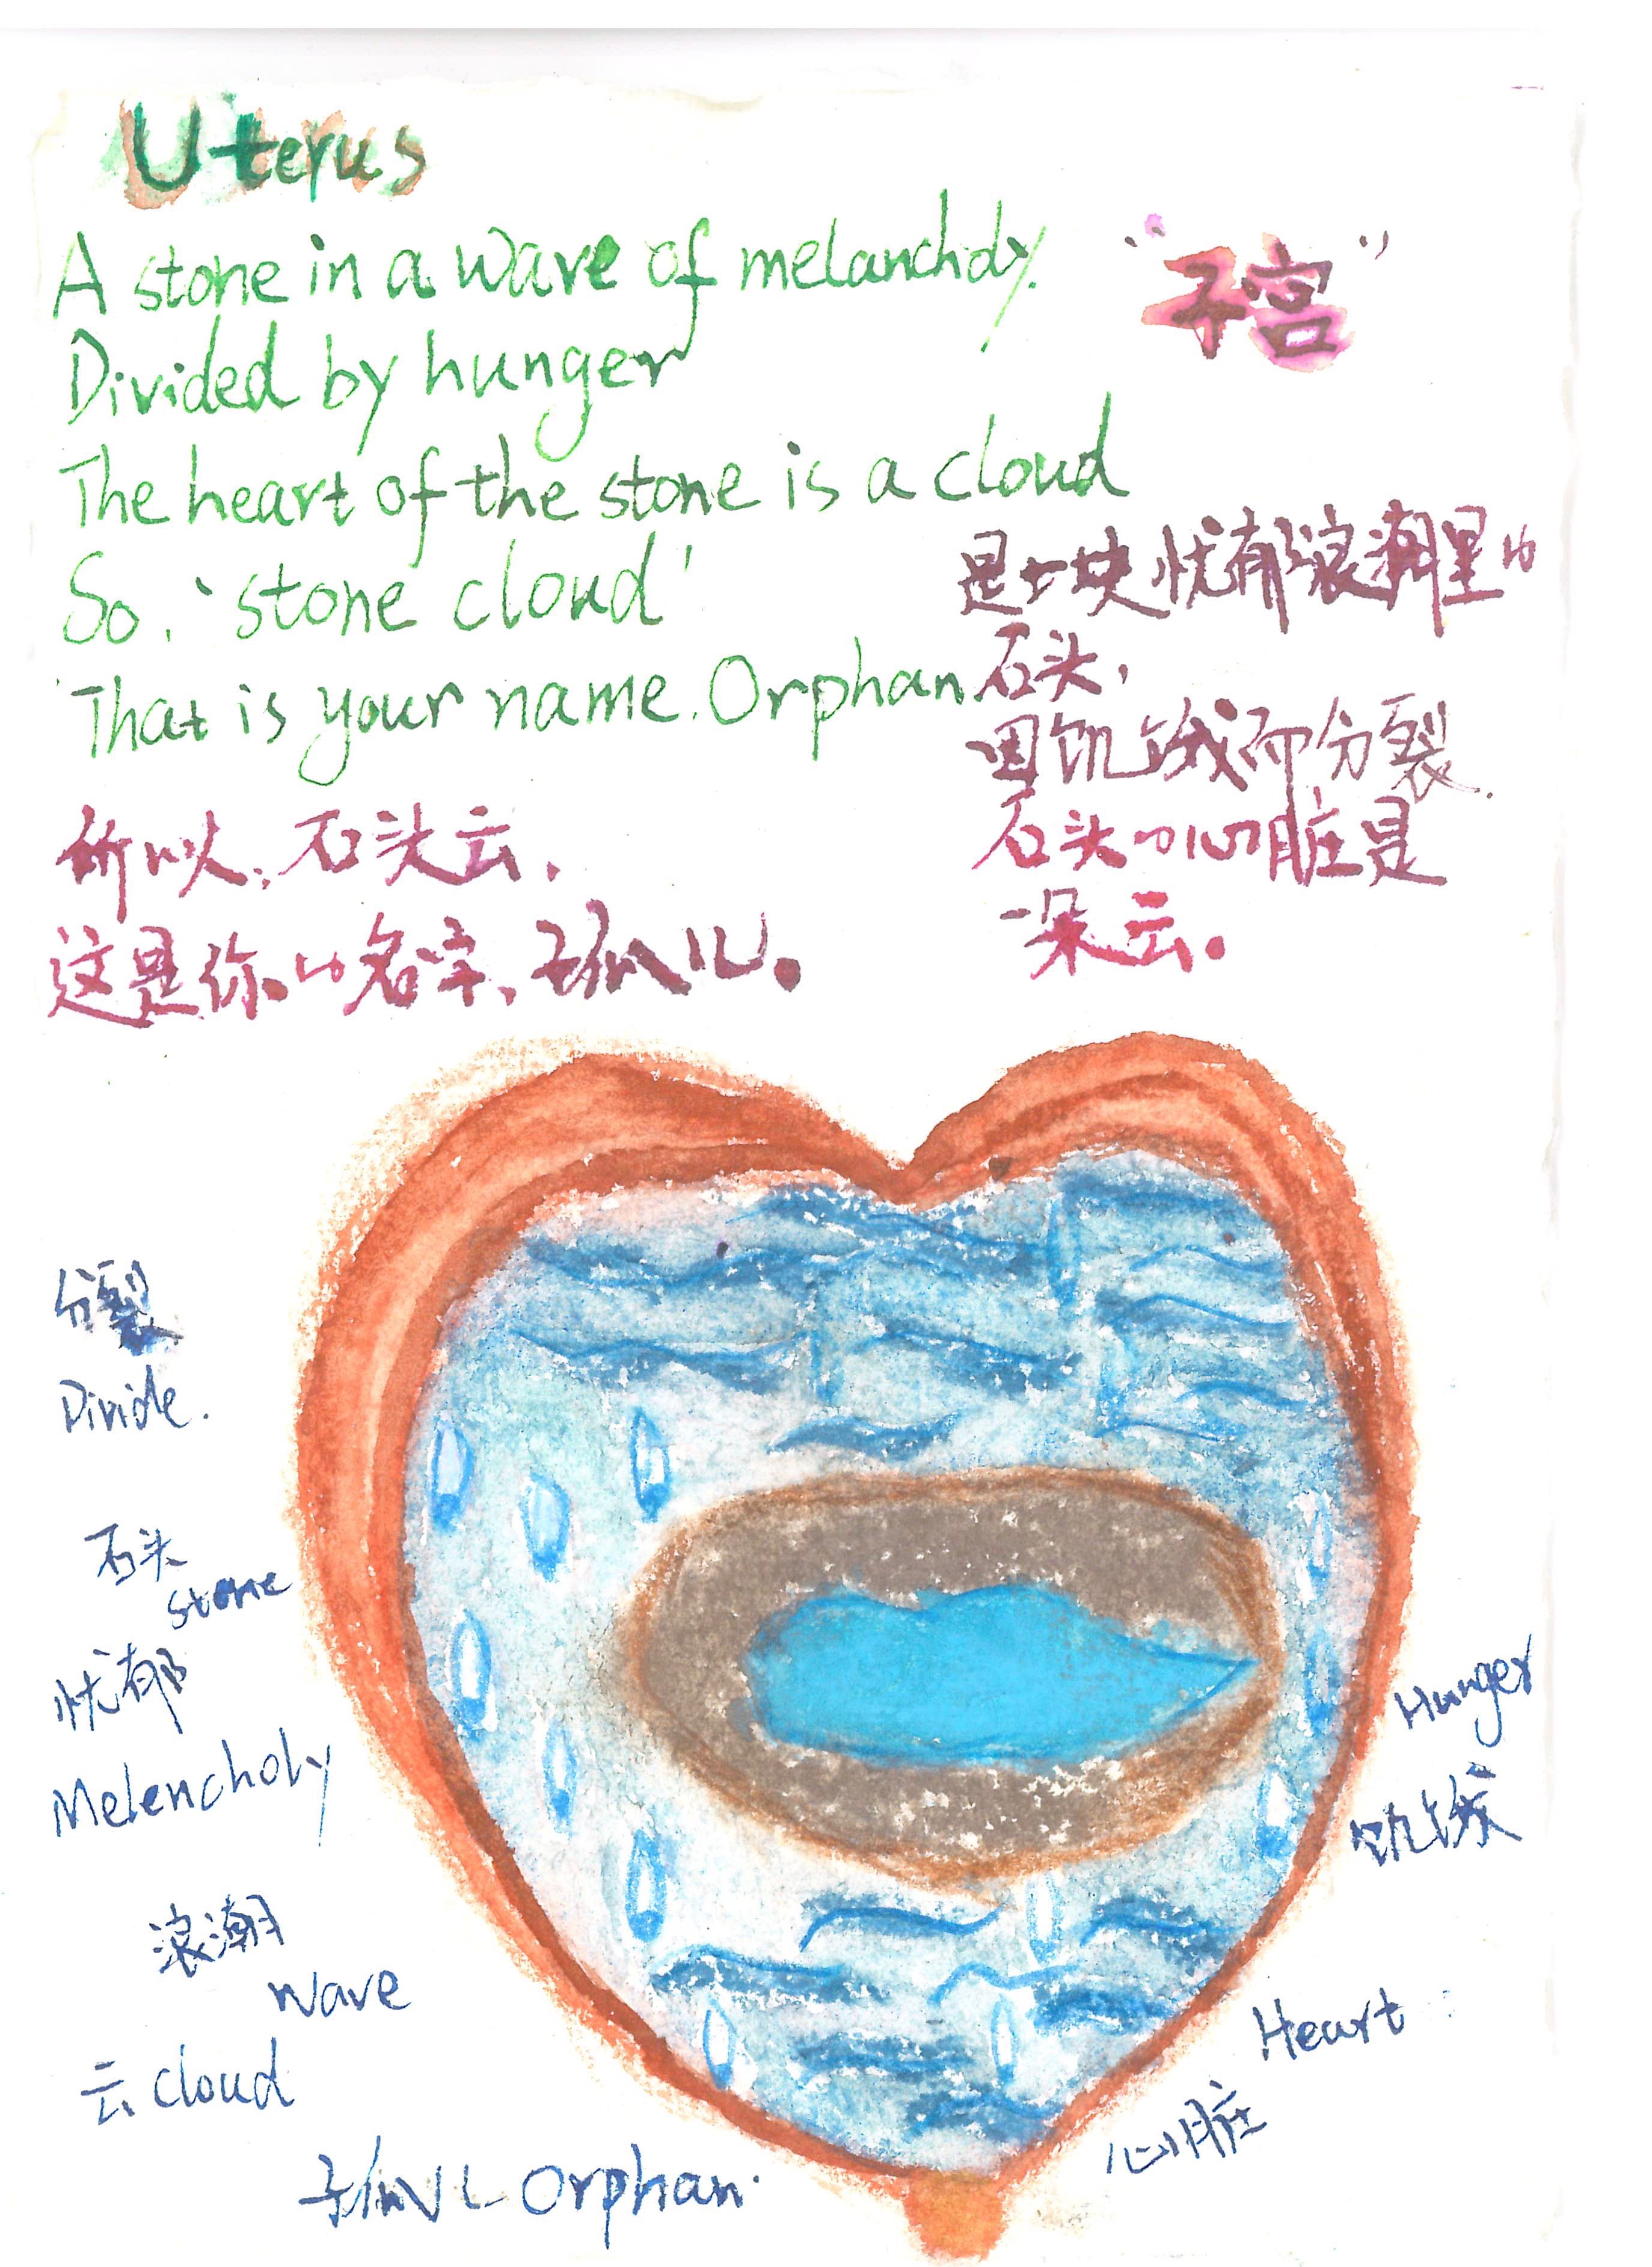 Uterus
A stone in a wave of melancholy.
Divided by hunger
The heart of the stone is a cloud
So, 'stone cloud'
That is your name. Orphan
“子宫”
是一块忧郁浪潮里的
石头,
因饥饿而分裂.
石头的心脏是
一朵云。
所以, 石头云,
这是你的名字, 孤儿。
分裂
Divide.
石头
stone
忧郁
Melencholy
浪潮
Wave
云 cloud
孤儿 Orphan.
Hunger
饥饿
Heart
心脏